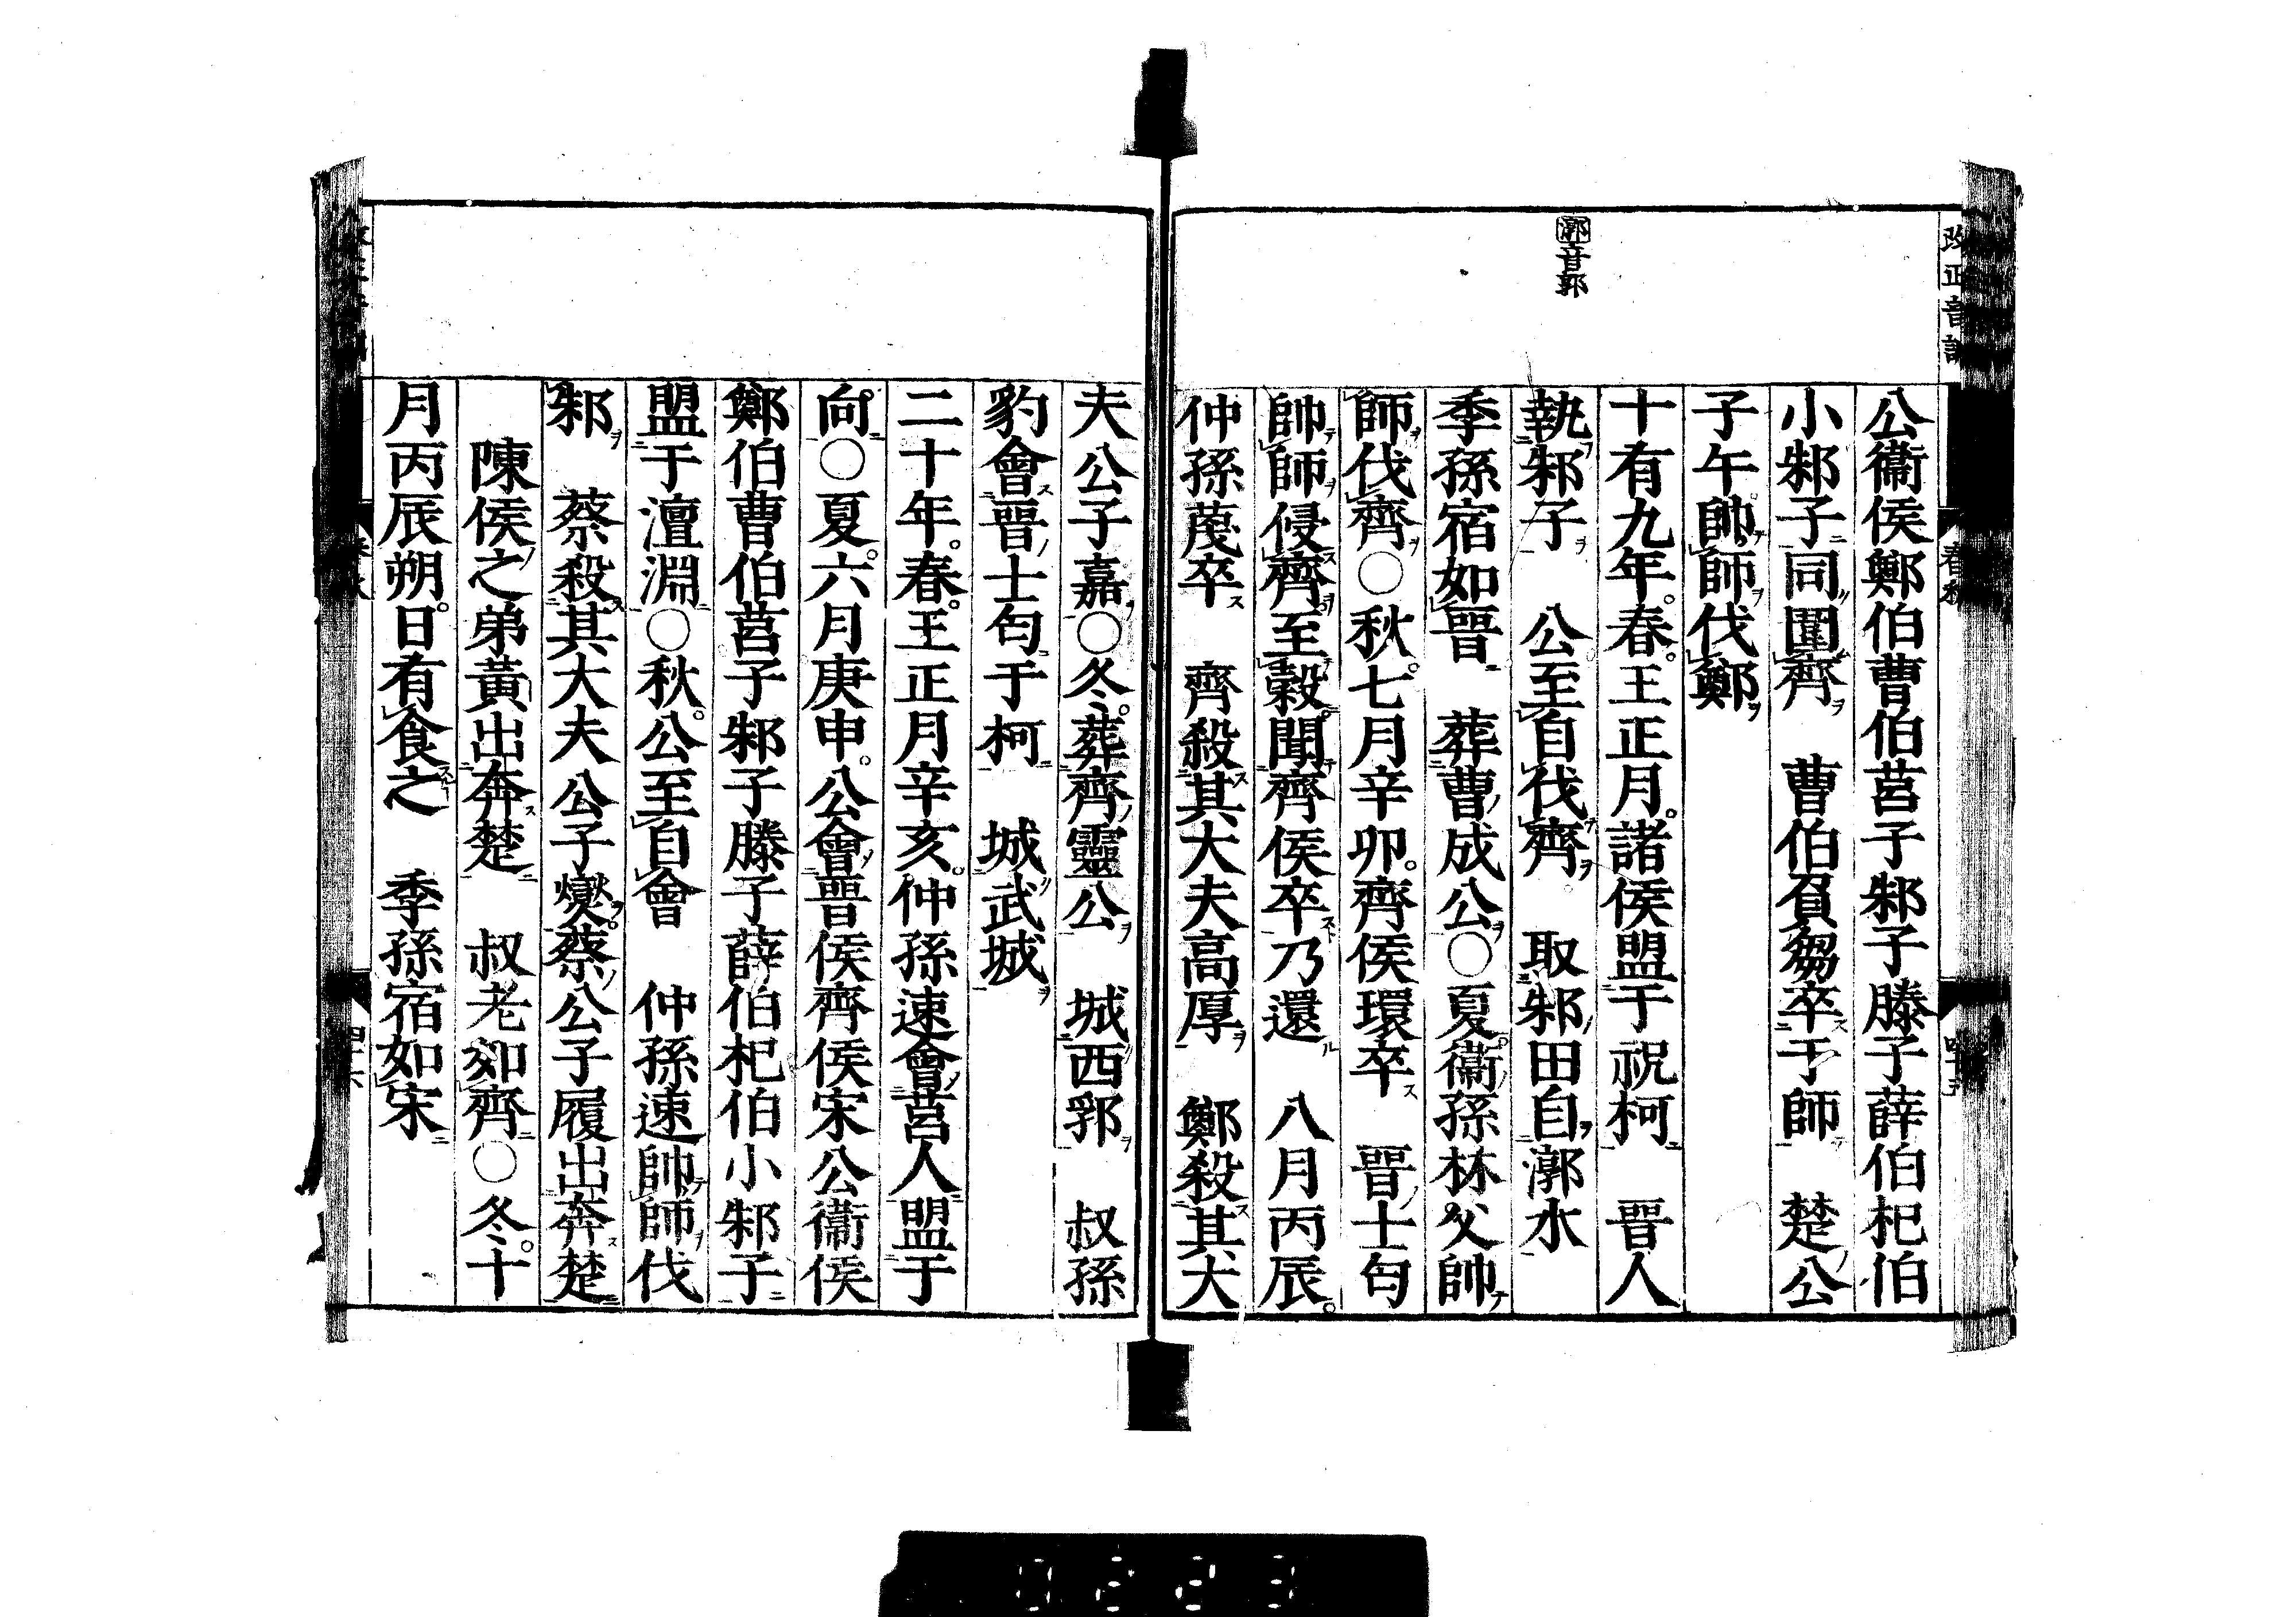 漷音郭
公衞侯鄭伯曹伯莒子邾子滕子薛伯杞伯
小邾子同圍齊　曹伯負芻卒于師　楚公
子午帥師伐鄭
十有九年春王正月諸侯盟于祝柯　晉人
執邾子　公至自伐齊　取邾田自漷水
季孫宿如晉　葬曹成公○夏衞孫林父帥
師伐齊○秋七月辛卯齊侯環卒　晉士匄
帥師侵齊至穀聞齊侯卒乃還　八月丙辰
仲孫蔑卒　齊殺其大夫高厚　鄭殺其大
夫公子嘉○冬葬齊靈公　城西郛　叔孫
豹會晉士匄于柯　城武城
二十年春王正月辛亥仲孫速會莒人盟于
向○夏六月庚申公會晉侯齊侯宋公衞侯
鄭伯曹伯莒子邾子滕子薛伯杞伯小邾子
盟于澶淵○秋公至自會　仲孫速帥師伐
邾　蔡殺其大夫公子燮蔡公子履出奔楚
陳侯之弟黃出奔楚　叔老如齊○冬十
月丙辰朔日有食之　季孫宿如宋